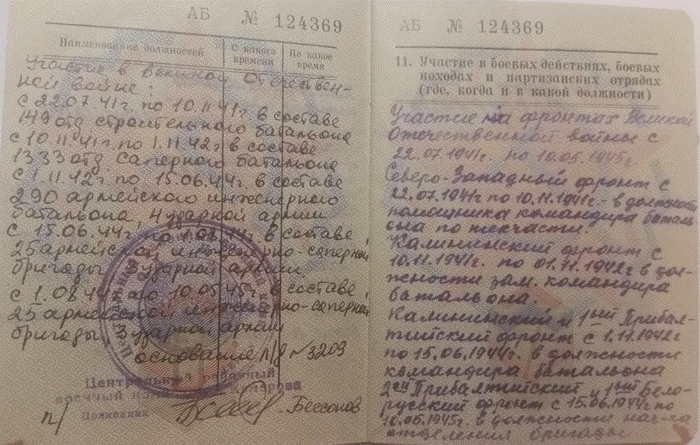 АБ № 124369
Наименование должностей
С какого времени
По какое время
Участие в Великой Отечествен-
ной войне:
с 22.07.41г. по 10.11.41г. в составе
149 отд строительного батальона
с 10.11.41г. по 1.11.42г. в составе
1333 отд саперного батальона
с 1.11.42г. по 15.06.44г. в составе
290 армейского инженерного
батальона, 4 ударной армии
с 15.06.44г. по 1.08.44г. в составе
25 армейской инженерно-саперной
бригады, ударной армии
с 1.08.44г. по 10.05.45г. в составе
25 армейской инженерно-саперной
бригады, ударной армии
основание л/д № 3203
Центральный
военный
п/п Полковник Бессонов
АБ № 124369
11. Участие в боевых действиях, боевых
походах и партизанских отрядах
(где, когда и в какой должности)
Участие на фронтах Великой
Отечественной войны с
22.07.1941г. по 10.05.1945г.
Северо-Западный фронт с
22.07.1941 по 10.11.1941г.- в должности
помощника командира баталь-
она по техчасти.
Калининский фронт с
10.11.1941г. по 01.11.1942г в дол-
жности зам. командира
батальона.
Калининский и 1ный Прибал-
тийский фронт с 1.11.1942
по 15.06.1944г. в должности
командира батальона
2ой Прибалтийский и 1ный Бело-
русский фронт с 15.06.1944г по
10.05.1945г. в должности нач-ка
отделения бригады